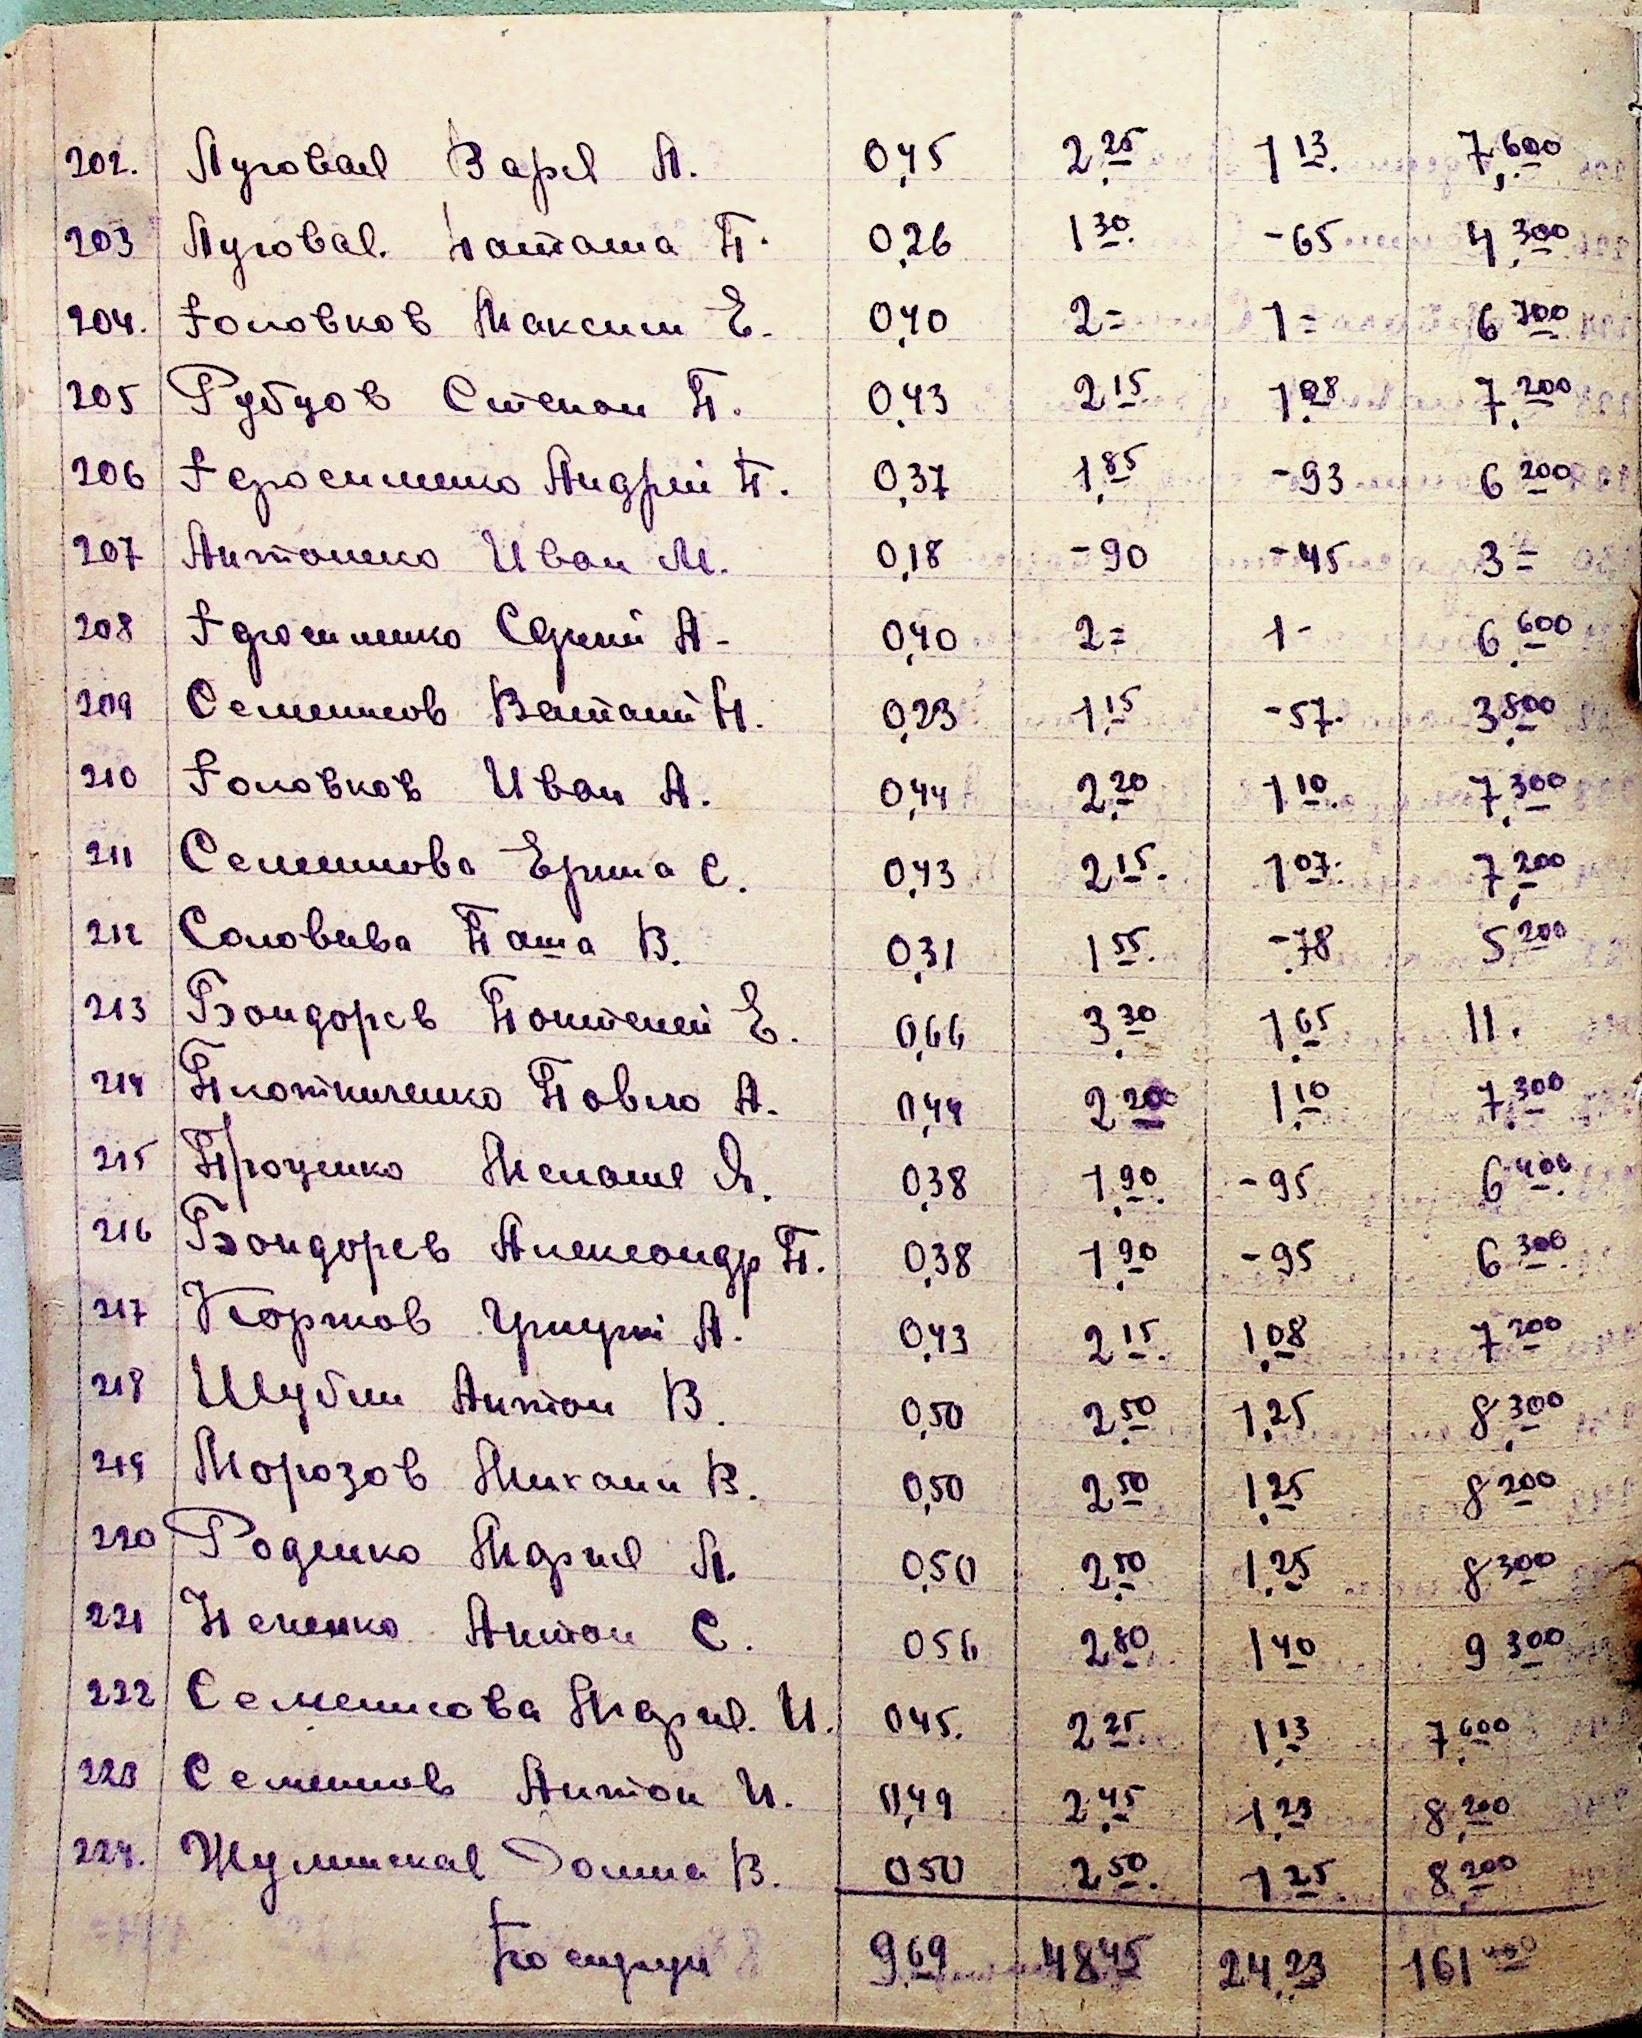 202. Луговая Варя А. 0,45 2,25 1 13. 7,600
203 Луговая. Наташа П. 0,26 1 30. -65 4,300
204. Головков Максим Е. 0,40 2= 1= 6 700
205 Рубцов Степан П. 0,43 2 15 1,08 7,200
206 Герасименко Андрей П. 0,37 1,85 -93 6 200
207 Антоненко Иван М. 0,18 -90 -45 3=
208 Герасименко Сергий А- 0,40 2= 1- 6,600
209 Семенихов Н. 0,23 1,15 -57. 3,800
210 Головков Иван А. 0,44 2,20 1 10. 7,300
211 Семенихова С. 0,43 2 15. 1 07. 7,200
212 Соловьева Паша В. 0,31 1 55. -78 5 200
213 Бондарев Пантелей Е. 0,66 3,30 1,65 11.
214 Плотниченко Павло А. 0,44 2 200 1,10 7,300
215 Проценко Я. 0,38 1,90. -95 6 400
216 Бондарев Александр П. 0,38 1,90 -95 6 300
217 А. 0,43 2 15. 1,08 7 200
218 Шубин Антон В. 0,50 2,50 1,25 8,300
219 Морозов Михаил В. 0,50 2,50 1,25 8 200
220 Роденко Мария А. 0,50 2,50 1,25 8 300
221 Антон С. 056 2,80 1 40 9 300
222 Семенихова Мария. И. 045. 2 25. 1,13 7,600
223 Семенихов Антон И. 0,49 2,45 1,23 8,200
224. В. 050 2 50. 1 25 8,200
9,69 48 45 24,23 161